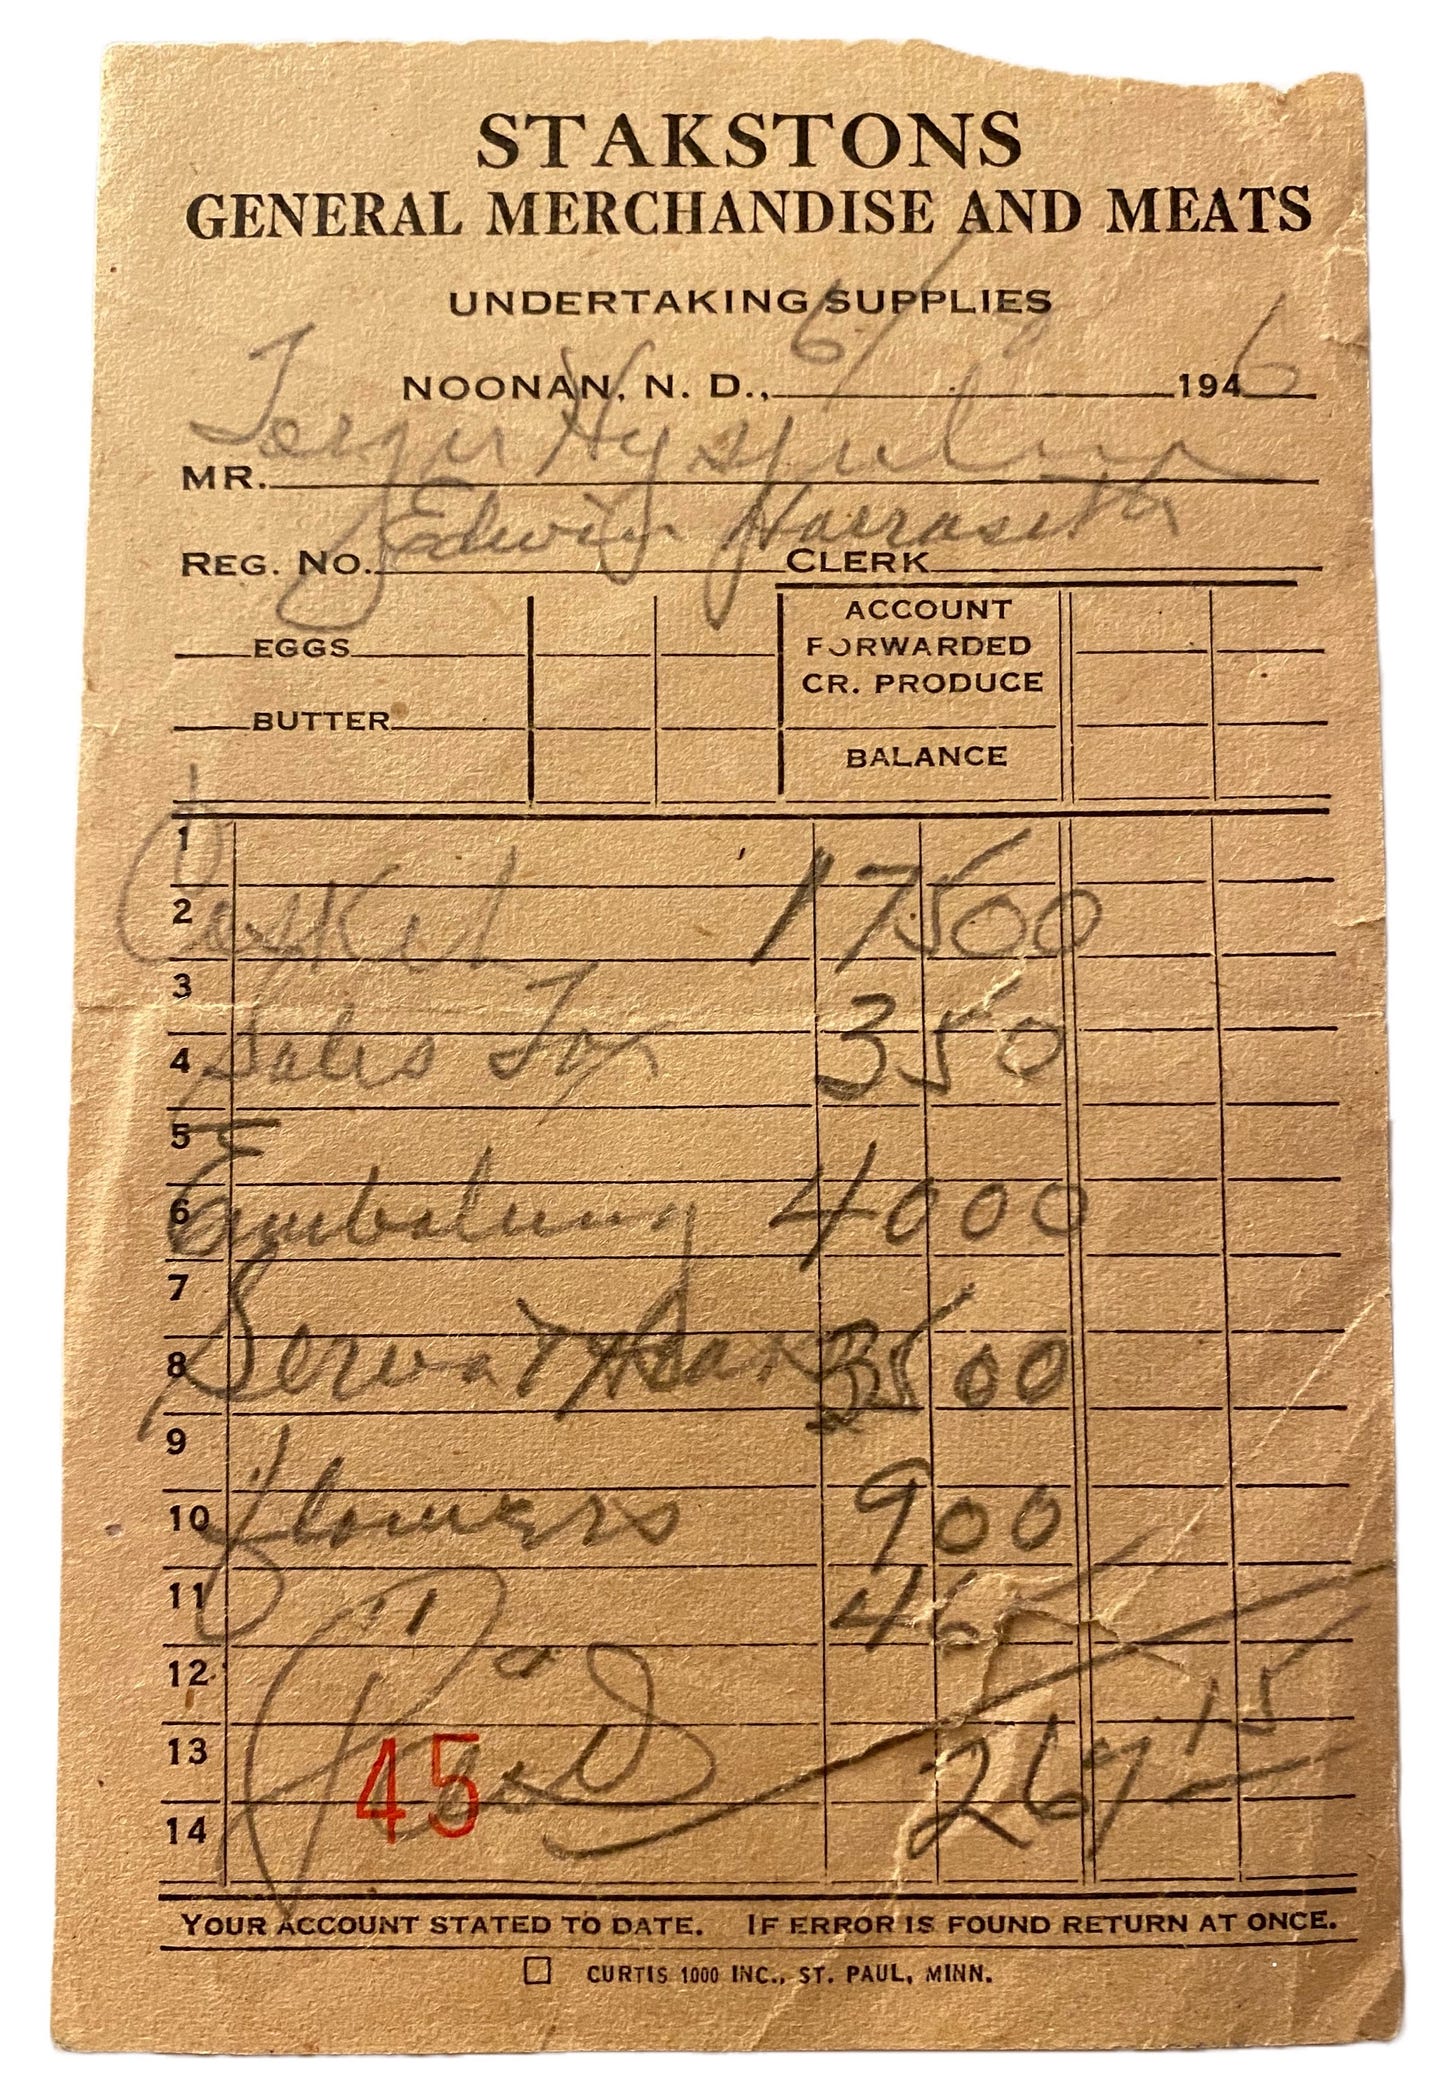 STAKSTONS
GENERAL MERCHANDISE AND MEATS
UNDERTAKING SUPPLIES
NOONAN, N. D., 6/ 1946
MR.
Edwin
REG. NO. CLERK
EGGS ACCOUNT FORWARDED
CR. PRODUCE
BUTTER
BALANCE
1
2 Casket 175 00
3
4 Sales Tax 3 50
5
6 Embalming 40 00
7
8 35 00
9
10 flowers 9 00
11 4 65
12
13 Paid 267 15
45
14
YOUR ACCOUNT STATED TO DATE. IF ERROR IS FOUND RETURN AT ONCE.
CURTIS 1000 INC., ST. PAUL, MINN.